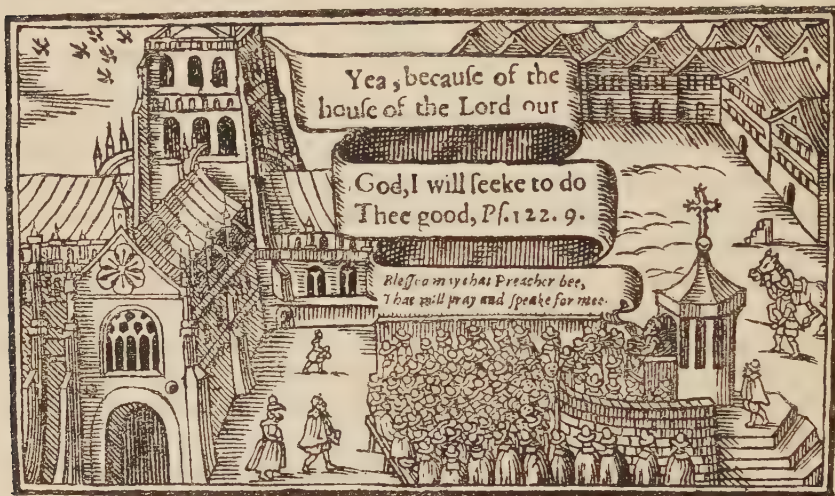 Yea, becauſe of the
houſe of the Lord our
God, I will ſeeke to do
Thee good, Pſ. 122. 9.
Bleſſed may that Preacher bee,
That will pray and ſpeake for mee.